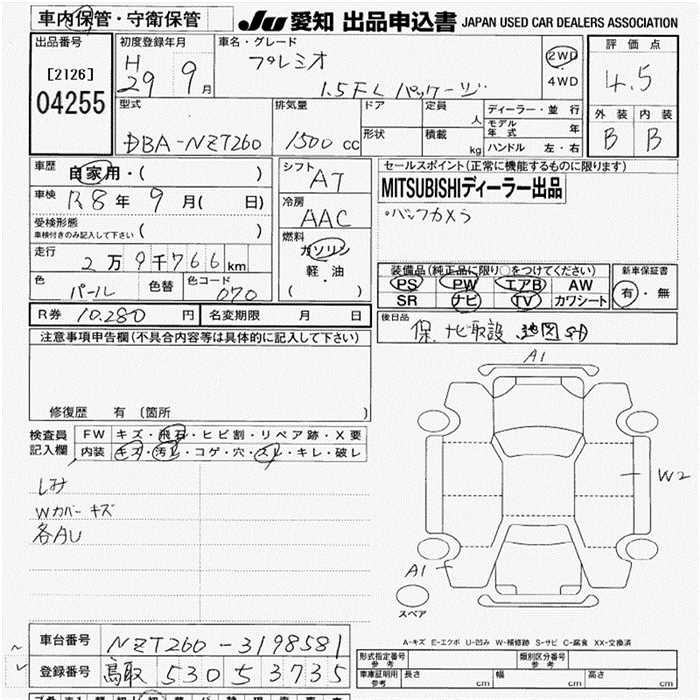 車内保管・守衛保管
JU 愛知 出品申込書 JAPAN USED CAR DEALERS ASSOCIATION
出品番号
[2126]
04255
初度登録年月
H29 9月
車名・グレード
プレミオ
1.5FL パッケージ
2WD
4WD
評価点
4.5
外装 内装
B B
型式
DBA-NZT260
排気量
1500 cc
ドア
形状
定員 人
積載 kg
ディーラー・並行
モデル年式 年
ハンドル 左・右
車歴
自家用・( )
車検
R8年 9月( 日)
受検形態
車検付きのみ記入して下さい ( )
走行
2万9千766km
色
パール
色替
色コード
070
シフト
AT
冷房
AAC
燃料
ガソリン
軽・油
( )
セールスポイント(正常に機能するものに限ります)
MITSUBISHIディーラー出品
・バックカメラ
装備品(純正品に限り○をつけてください)
PS PW エアB AW
SR ナビ TV カワシート
新車保証書
有・無
R券 10.280円 名変期限 月 日
後日品
保、ナビ取説 地図SD
注意事項申告欄(不具合内容等は具体的に記入して下さい)
修復歴 有 (箇所 )
検査員記入欄
FW キズ・飛石・ヒビ割・リペア跡・X要
内装 キズ・汚レ・コゲ・穴・スレ・キレ・破レ
しみ
Wカバーキズ
各AU
A1
W2
A1
スペア
A-キズ E-エクボ U-凹み W-補修跡 S-サビ C-腐食 XX-交換済
車台番号 NZT260-3198581
登録番号 鳥取 530 さ 3735
形式指定番号 参考
類別区分番号 参考
車庫証明用 参考 長さ cm 幅 cm 高さ cm